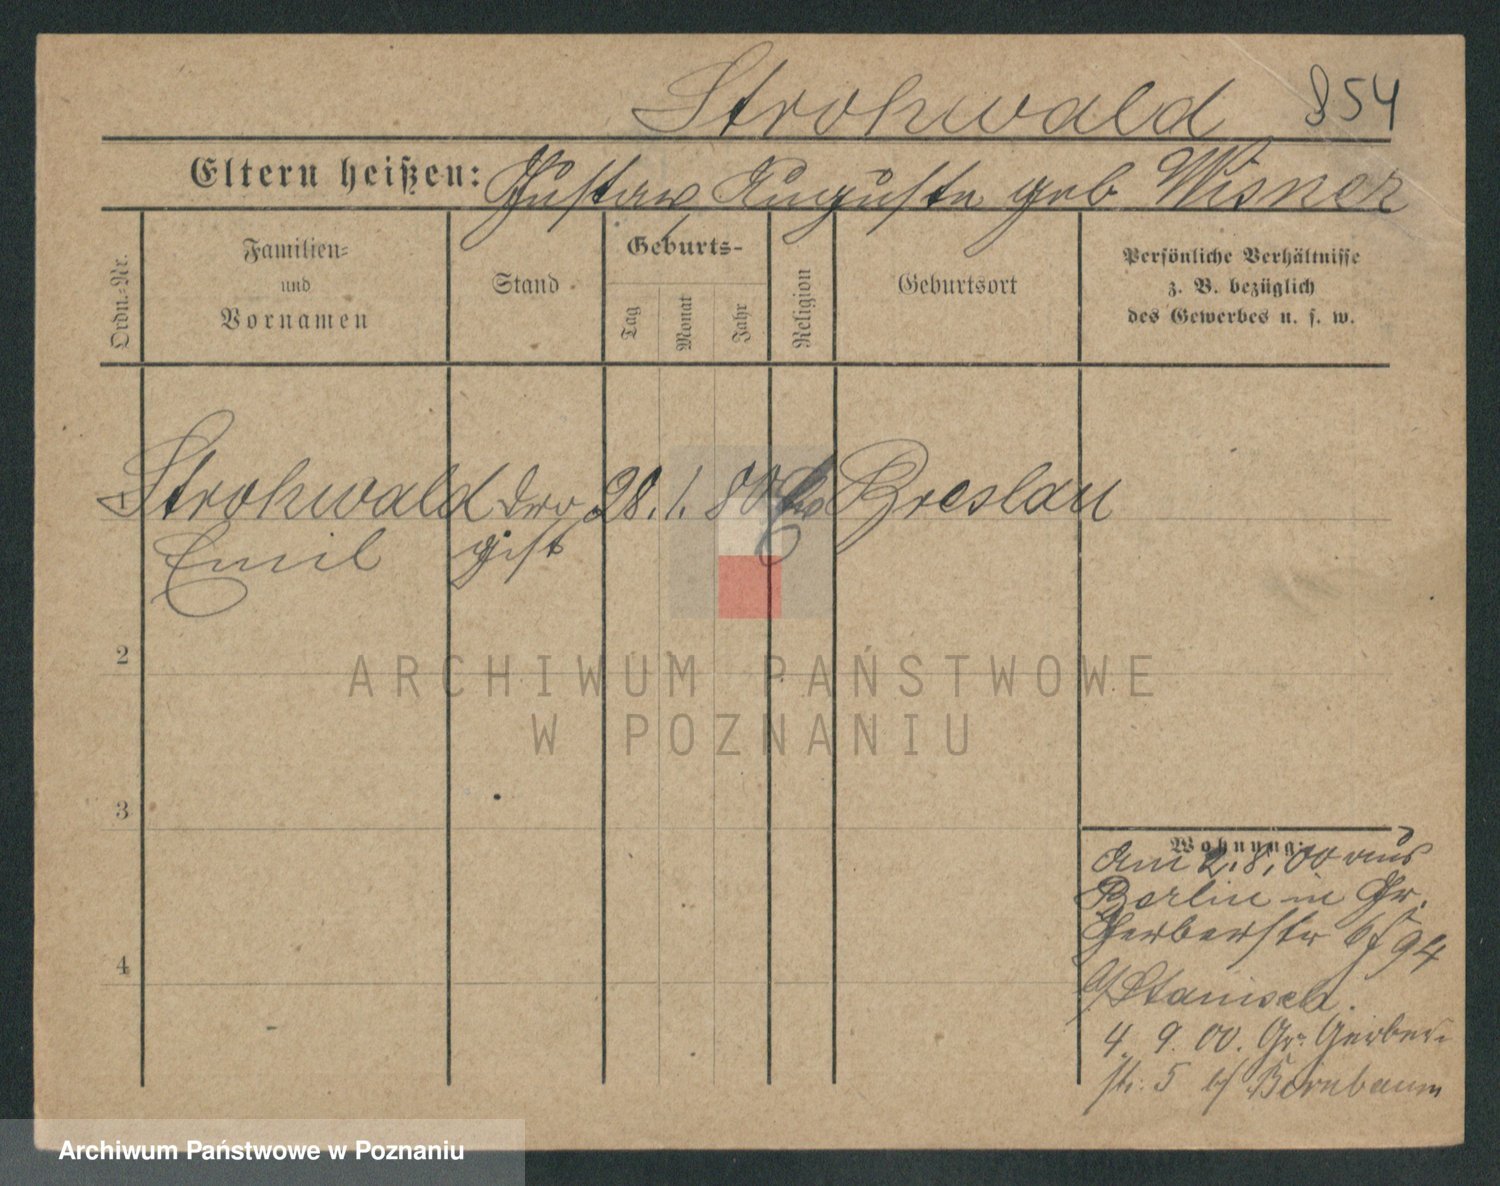 Strohwald 854
Eltern heißen: Gustav, Auguste geb Wisner
Ordn.-Nr.
Familien-
und
Vornamen
Stand
Geburts-
Tag
Monat
Jahr
Religion
Geburtsort
Persönliche Verhältnisse
z. B. bezüglich
des Gewerbes u. s. w.
1 Strohwald Dro 28. 1. 80 Breslau
Emil gist
2
3
4
Wohnung:
Am 2.8.00 aus
Berlin in Gr.
Gerberstr 94
b/ Stanisch.
4. 9. 00. Gr. Gerber-
str. 5 b/ Birnbaum
ARCHIWUM PAŃSTWOWE
W POZNANIU
Archiwum Państwowe w Poznaniu